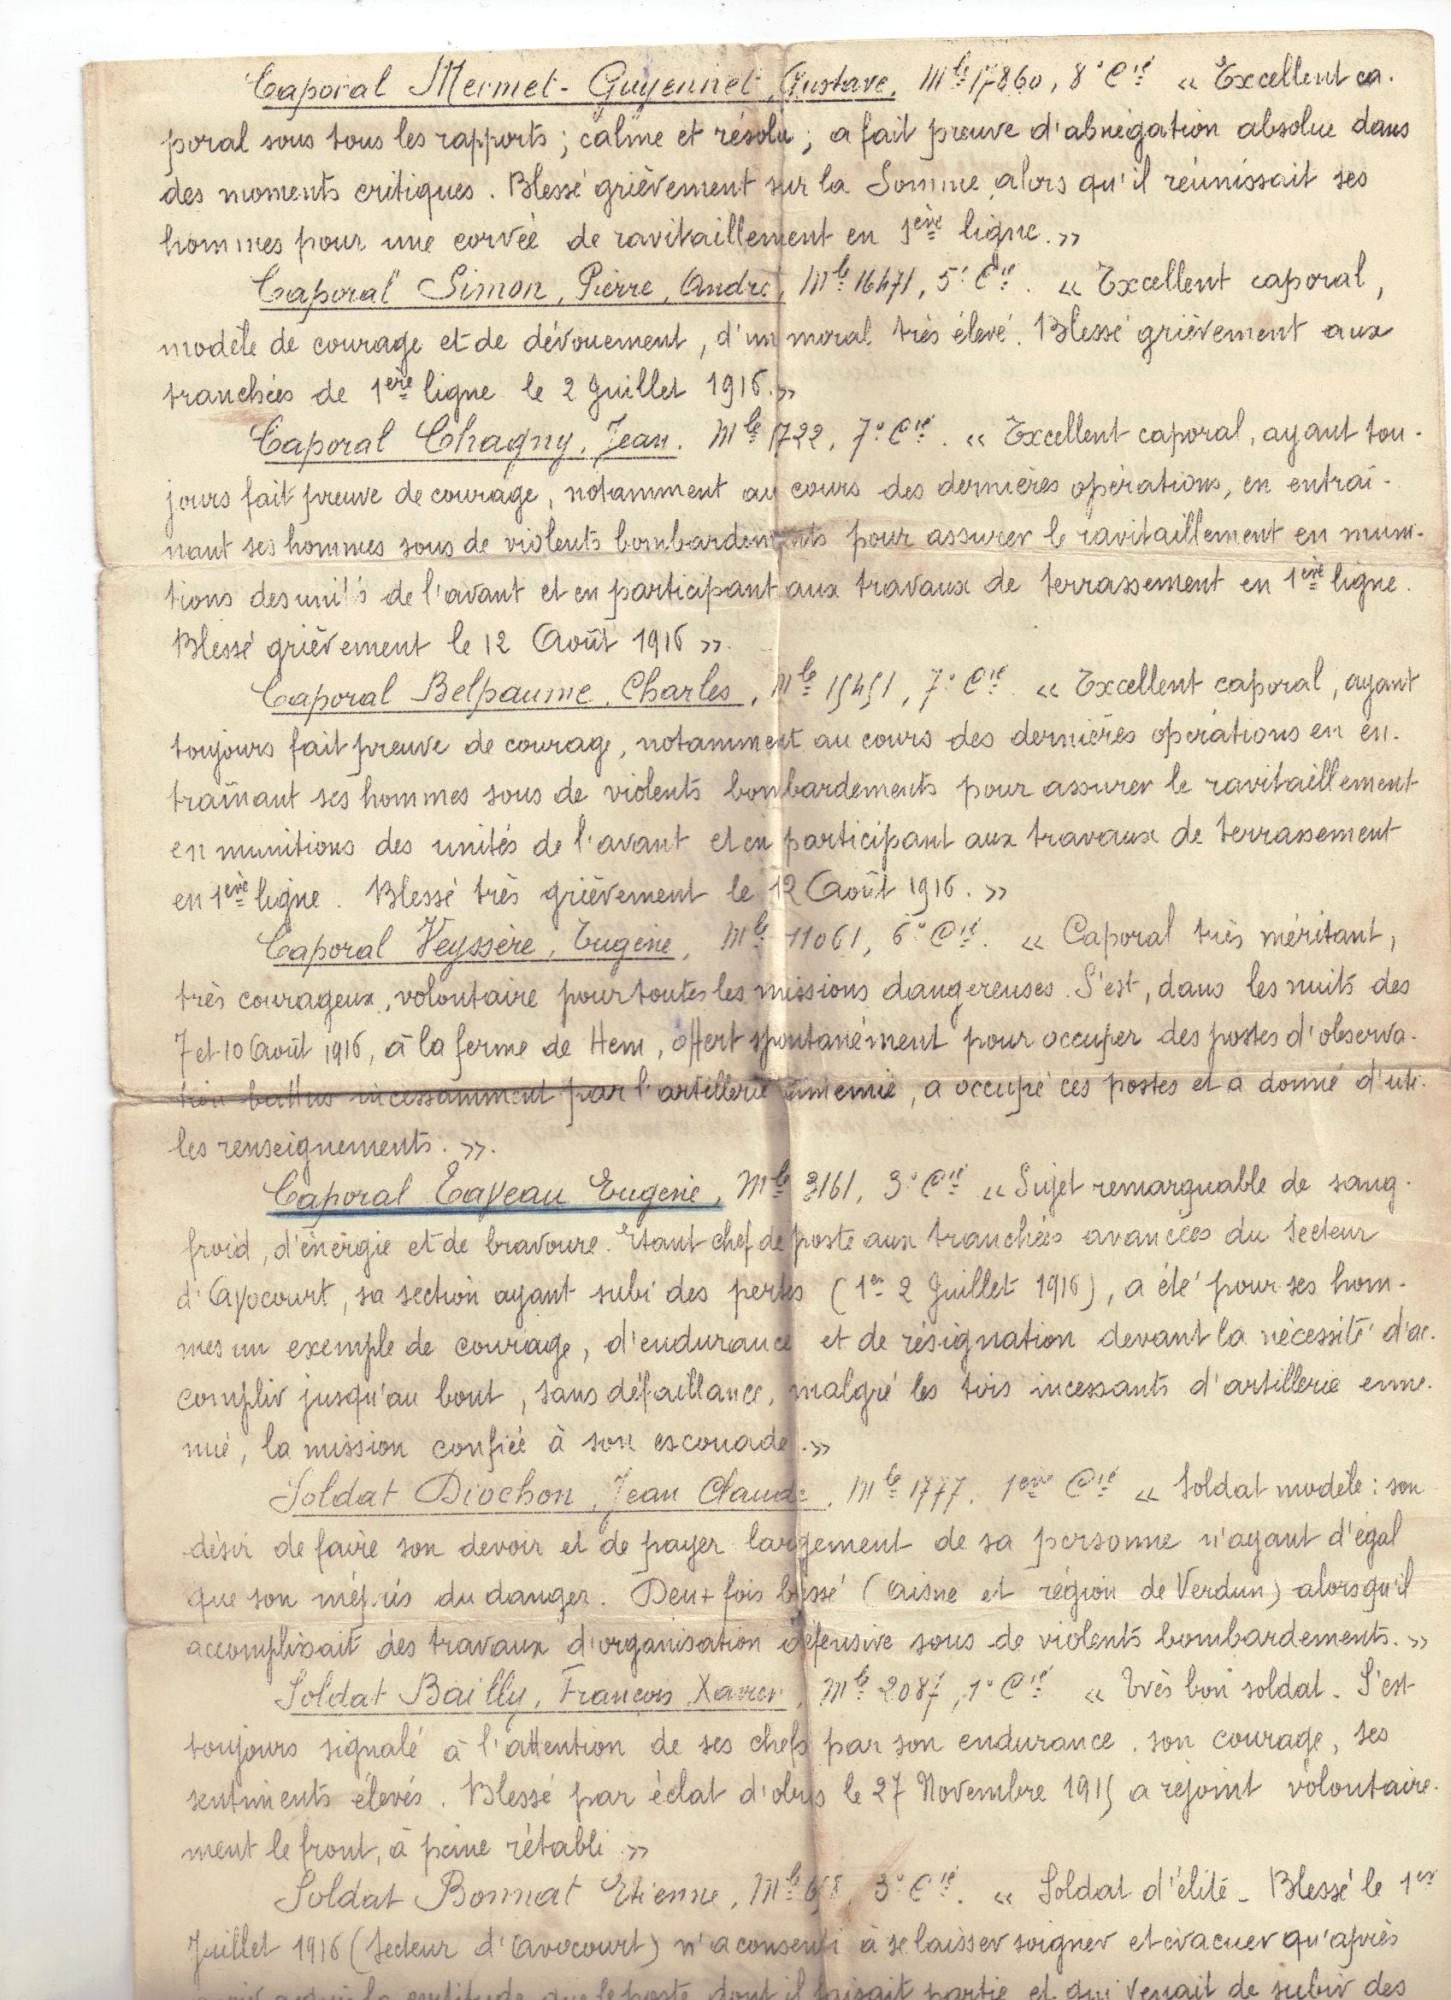 Caporal Mermet-Guyennet, Gustave, Mle 17860, 8e Cie « Excellent ca-
poral sous tous les rapports ; calme et résolu ; a fait preuve d'abnégation absolue dans
des moments critiques. Blessé grièvement sur la Somme alors qu'il réunissait ses
hommes pour une corvée de ravitaillement en 1ère ligne. »
Caporal Simon, Pierre, André, Mle 16471, 5e Cie. « Excellent caporal,
modèle de courage et de dévouement, d'un moral très élevé. Blessé grièvement aux
tranchées de 1ère ligne le 2 Juillet 1916. »
Caporal Chagny, Jean. Mle 1722, 7e Cie. « Excellent caporal, ayant tou-
jours fait preuve de courage, notamment au cours des dernières opérations, en entraî-
nant ses hommes sous de violents bombardements pour assurer le ravitaillement en muni-
tions des unités de l'avant et en participant aux travaux de terrassement en 1ère ligne.
Blessé grièvement le 12 Août 1916 ».
Caporal Belpaume, Charles, Mle 15451, 7e Cie « Excellent caporal, ayant
toujours fait preuve de courage, notamment au cours des dernières opérations en en-
traînant ses hommes sous de violents bombardements pour assurer le ravitaillement
en munitions des unités de l'avant et en participant aux travaux de terrassement
en 1ère ligne. Blessé très grièvement le 12 Août 1916. »
Caporal Veyssère, Eugène, Mle 11061, 6e Cie. « Caporal très méritant,
très courageux, volontaire pour toutes les missions dangereuses. S'est, dans les nuits des
7 et 10 Août 1916, à la ferme de Hem, offert spontanément pour occuper des postes d'observa-
tion battus incessamment par l'artillerie ennemie, a occupé ces postes et a donné d'uti-
les renseignements. ».
Caporal Taveau Eugène, Mle 3161, 3e Cie « Sujet remarquable de sang-
froid, d'énergie et de bravoure. Etant chef de poste aux tranchées avancées du secteur
d'Avocourt, sa section ayant subi des pertes (1er 2 Juillet 1916), a été pour ses hom-
mes un exemple de courage, d'endurance et de résignation devant la nécessité d'ac-
complir jusqu'au bout, sans défaillance, malgré les tirs incessants d'artillerie enne-
mie, la mission confiée à son escouade. »
Soldat Diochon, Jean Claude, Mle 1777, 1ère Cie « Soldat modèle : son
désir de faire son devoir et de payer largement de sa personne n'ayant d'égal
que son mépris du danger. Deux fois blessé (Aisne et région de Verdun) alors qu'il
accomplissait des travaux d'organisation défensive sous de violents bombardements. »
Soldat Bailly, François Xavier, Mle 2087, 1e Cie « Très bon soldat. S'est
toujours signalé à l'attention de ses chefs par son endurance, son courage, ses
sentiments élevés. Blessé par éclat d'obus le 27 Novembre 1915 a rejoint volontaire-
ment le front, à peine rétabli »
Soldat Bonnat Etienne, Mle 3e Cie. « Soldat d'élite - Blessé le 1er
Juillet 1916 (secteur d'Avocourt) n'a consenti à se laisser soigner et évacuer qu'après
la certitude que le poste dont il faisait partie et qui venait de subir des